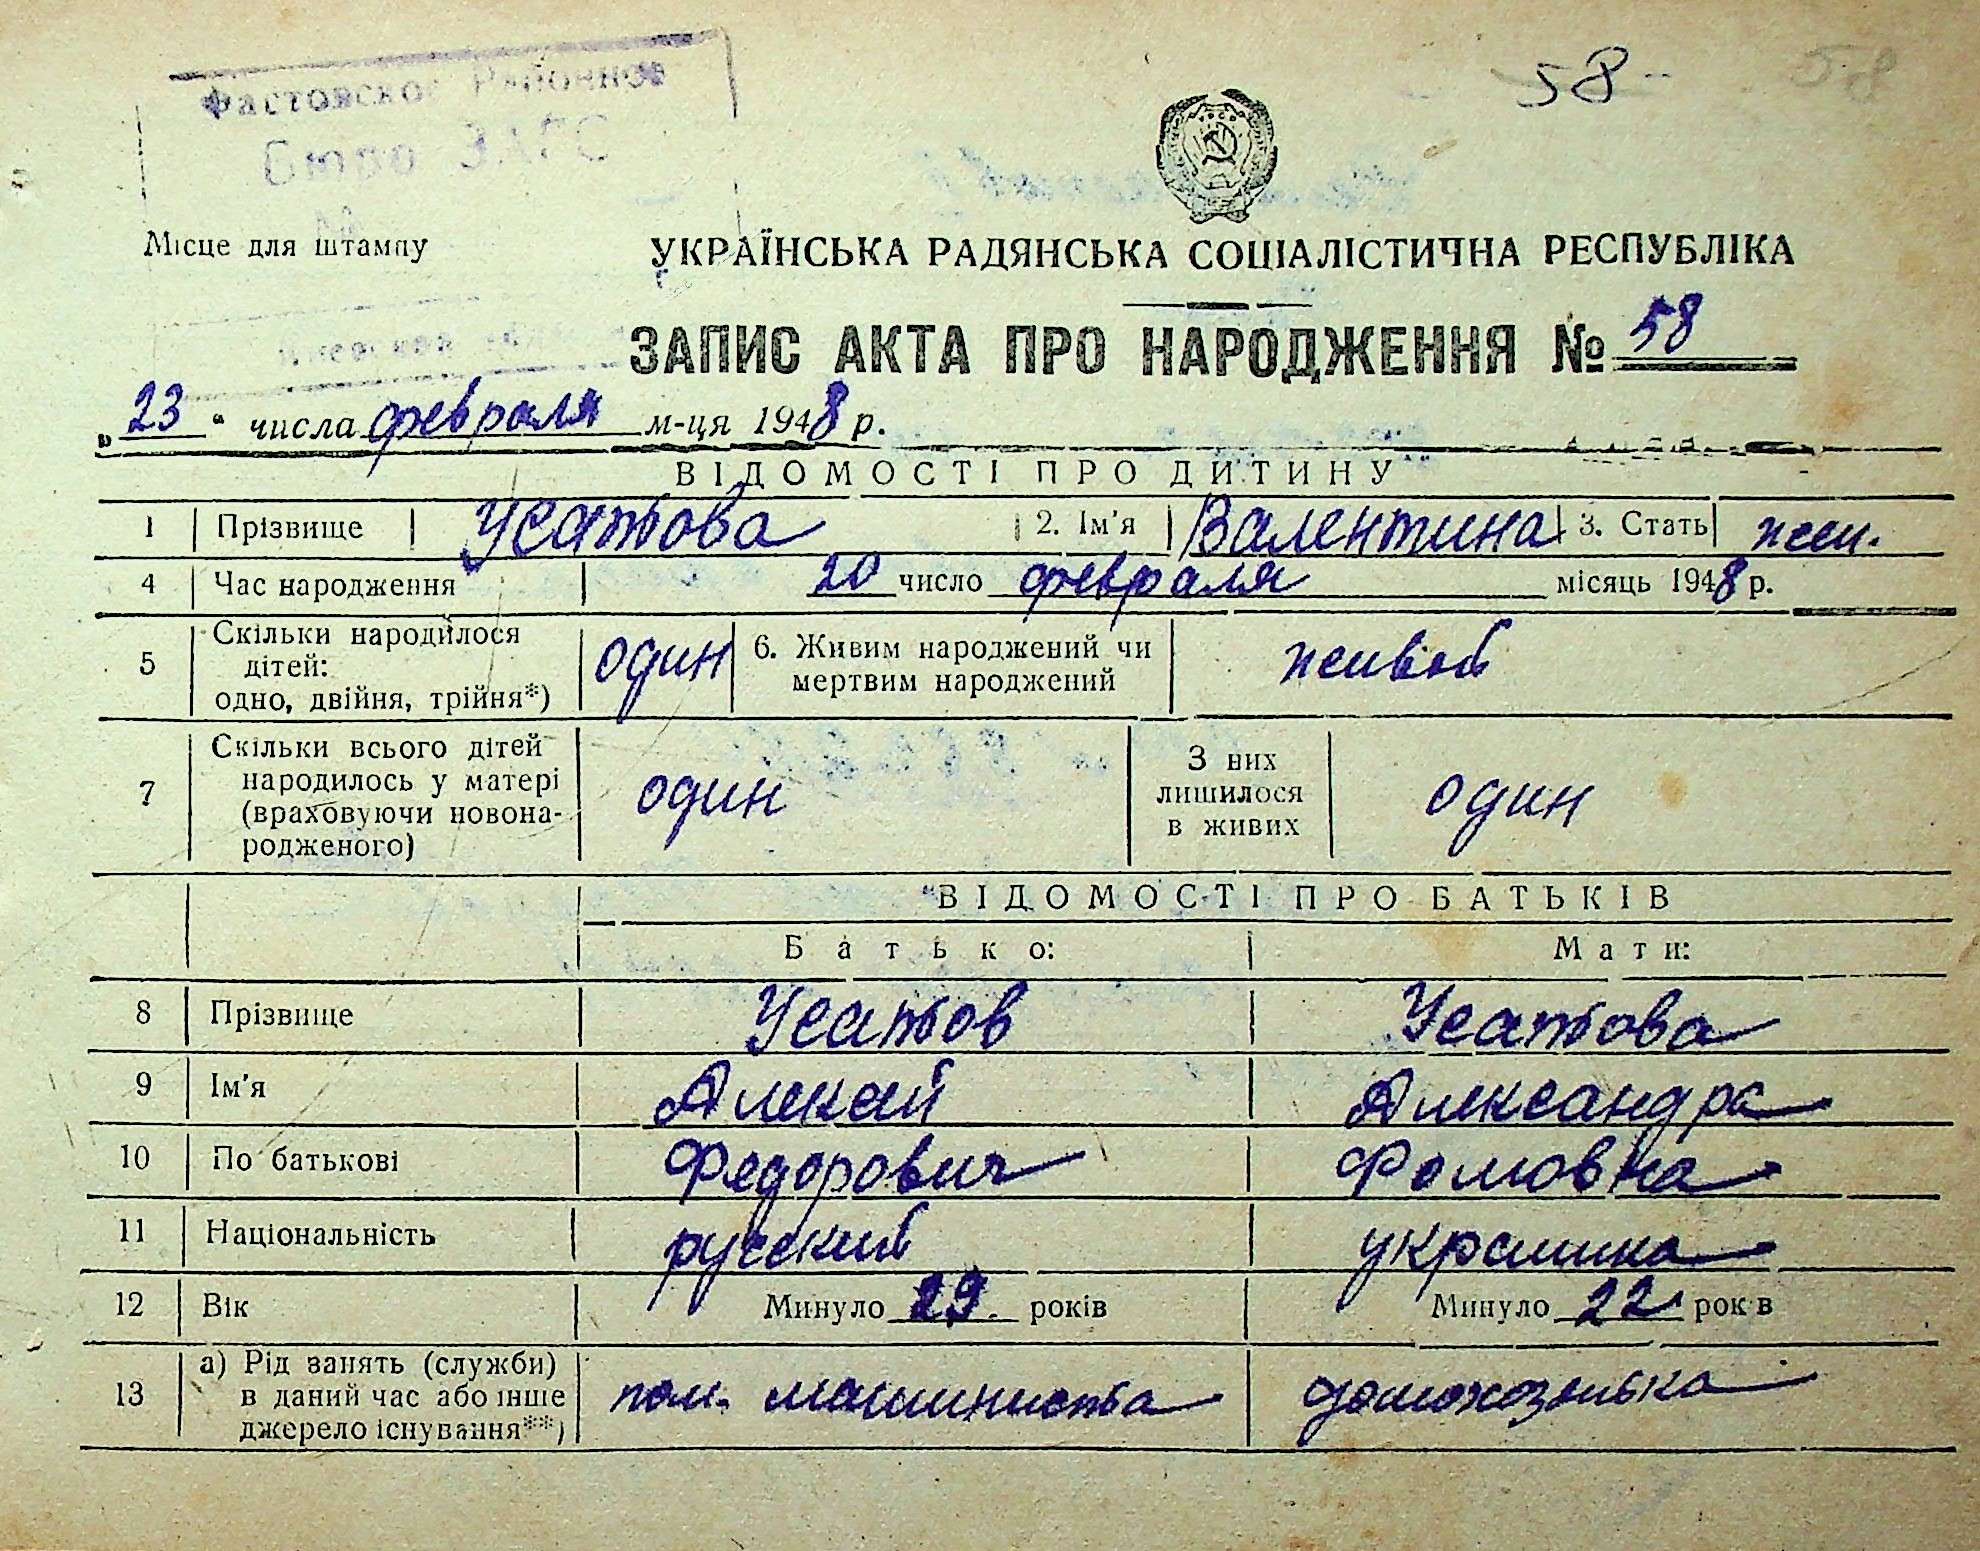 58 58
Фастовское Районное
Бюро ЗАГС
Місце для штампу
УКРАЇНСЬКА РАДЯНСЬКА СОЦІАЛІСТИЧНА РЕСПУБЛІКА
ЗАПИС АКТА ПРО НАРОДЖЕННЯ № 58
„23“ числа февраля м-ця 1948 р.
ВІДОМОСТІ ПРО ДИТИНУ
1 Прізвище Усатова 2. Ім'я Валентина 3. Стать жен.
4 Час народження 20 число февраля місяць 1948 р.
5 Скільки народилося дітей: одно, двійня, трійня*) один 6. Живим народжений чи мертвим народжений живой
7 Скільки всього дітей народилось у матері (враховуючи новонародженого) один З них лишилося в живих один
ВІДОМОСТІ ПРО БАТЬКІВ
Батько: Мати:
8 Прізвище Усатов Усатова
9 Ім'я Алексей Александра
10 По батькові Федорович Фомовна
11 Національність русский украинка
12 Вік Минуло 29. років Минуло 22. рок в
13 а) Рід занять (служби) в даний час або інше джерело існування**) пом. машиниста домохозяйка